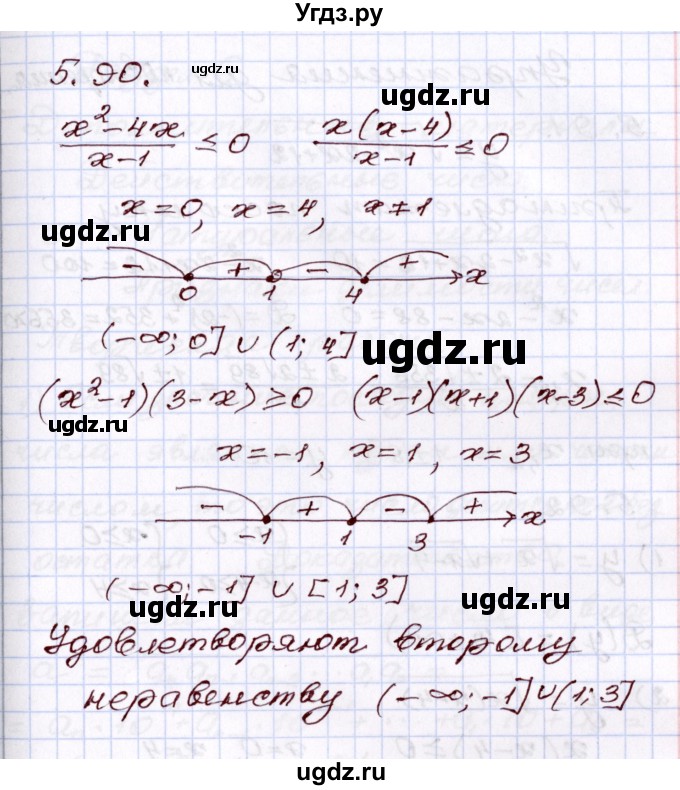 Угдз.ру
5.90.
ugdz.ru
ugdz.ru
(x²-4x)/(x-1) ≤ 0   x(x-4)/(x-1) ≤ 0
ugdz.ru
x=0, x=4, x≠1
ugdz.ru
- + - + x
0 1 4
(-∞; 0] ∪ (1; 4]
ugdz.ru
(x²-1)(3-x) ≥ 0   (x-1)(x+1)(x-3) ≤ 0
ugdz.ru
x=-1, x=1, x=3
- + - + x
-1 1 3
(-∞; -1] ∪ [1; 3]
ugdz.ru
ugdz.ru
Удовлетворяют второму
неравенству (-∞; -1] ∪ (1; 3]
ugdz.ru
ugdz.ru
ugdz.ru